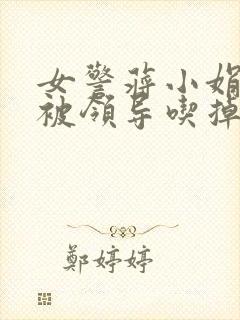 女警蒋小娟
被领导喫掉
鄭婷婷